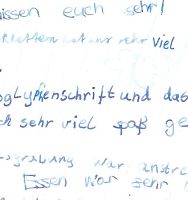 issen euch sehr!
sehr viel
oglyphenschrift und das
ch sehr viel spaß ge
sgrabung war anstre
Essen war sehr